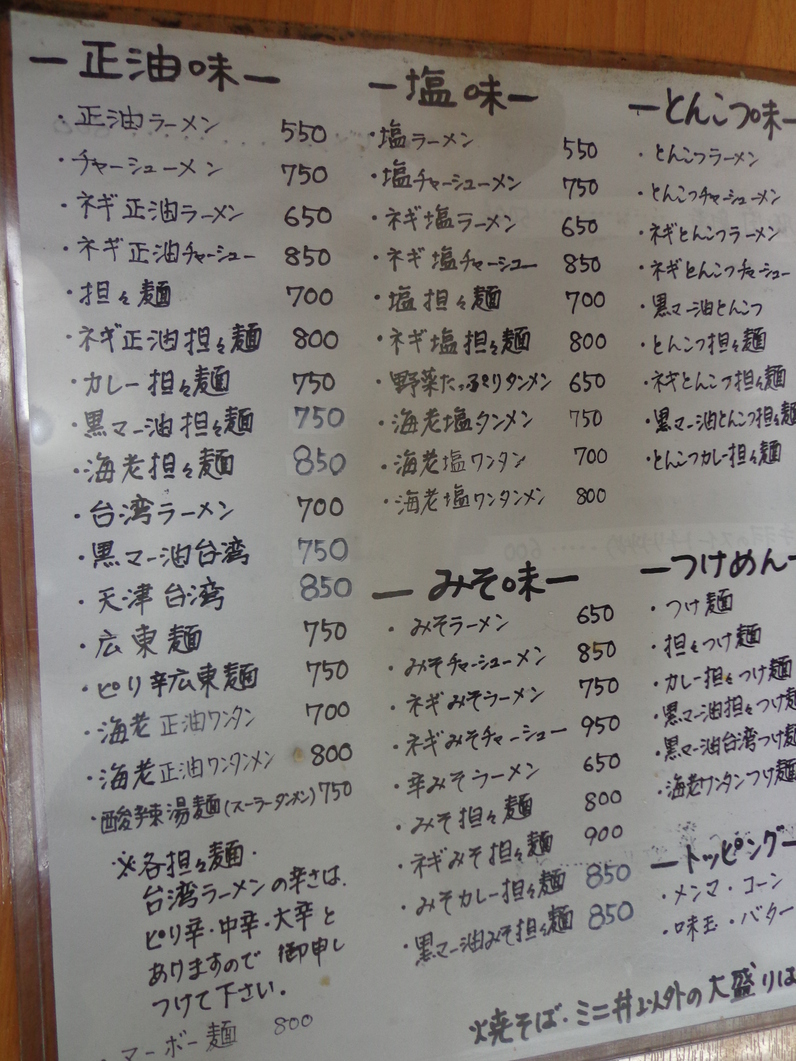 ー正油味ー
・正油ラーメン 550
・チャーシューメン 750
・ネギ正油ラーメン 650
・ネギ正油チャーシュー 850
・担々麺 700
・ネギ正油担々麺 800
・カレー担々麺 750
・黒マー油担々麺 750
・海老担々麺 850
・台湾ラーメン 700
・黒マー油台湾 750
・天津台湾 850
・広東麺 750
・ピリ辛広東麺 750
・海老正油ワンタン 700
・海老正油ワンタンメン 800
・酸辣湯麺(スーラータンメン) 750
※各担々麺・
台湾ラーメンの辛さは、
ピリ辛・中辛・大辛と
ありますので 御申し
つけて下さい。
・マーボー麺 800
ー塩味ー
・塩ラーメン 550
・塩チャーシューメン 750
・ネギ塩ラーメン 650
・ネギ塩チャーシュー 850
・塩担々麺 700
・ネギ塩担々麺 800
・野菜たっぷりタンメン 650
・海老塩タンメン 750
・海老塩ワンタン 700
・海老塩ワンタンメン 800
ーみそ味ー
・みそラーメン 650
・みそチャーシューメン 850
・ネギみそラーメン 750
・ネギみそチャーシュー 950
・辛みそラーメン 650
・みそ担々麺 800
・ネギみそ担々麺 900
・みそカレー担々麺 850
・黒マー油みそ担々麺 850
ーとんこつ味ー
・とんこつラーメン
・とんこつチャーシューメン
・ネギとんこつラーメン
・ネギとんこつチャーシュー
・黒マー油とんこつ
・とんこつ担々麺
・ネギとんこつ担々麺
・黒マー油とんこつ担々麺
・とんこつカレー担々麺
ーつけめんー
・つけ麺
・担々つけ麺
・カレー担々つけ麺
・黒マー油担々つけ麺
・黒マー油台湾つけ麺
・海老ワンタンつけ麺
ートッピングー
・メンマ・コーン
・味玉・バター
焼そば・ミニ丼以外の大盛りは